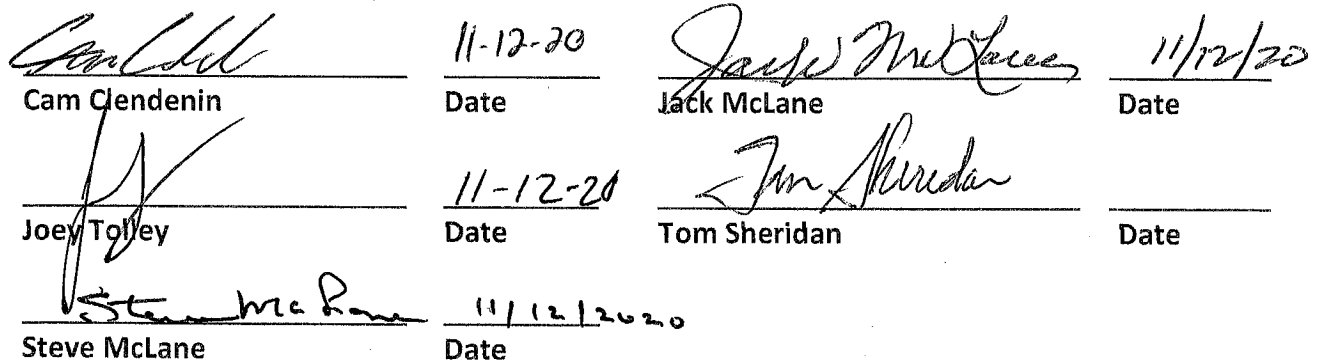 Cam Cled 11-12-20 Jack McLane 11/12/20
Cam Clendenin Date Jack McLane Date
11-12-20 Tom Sheridan
Joey Tolley Date Tom Sheridan Date
Steve McLane 11/12/2020
Steve McLane Date